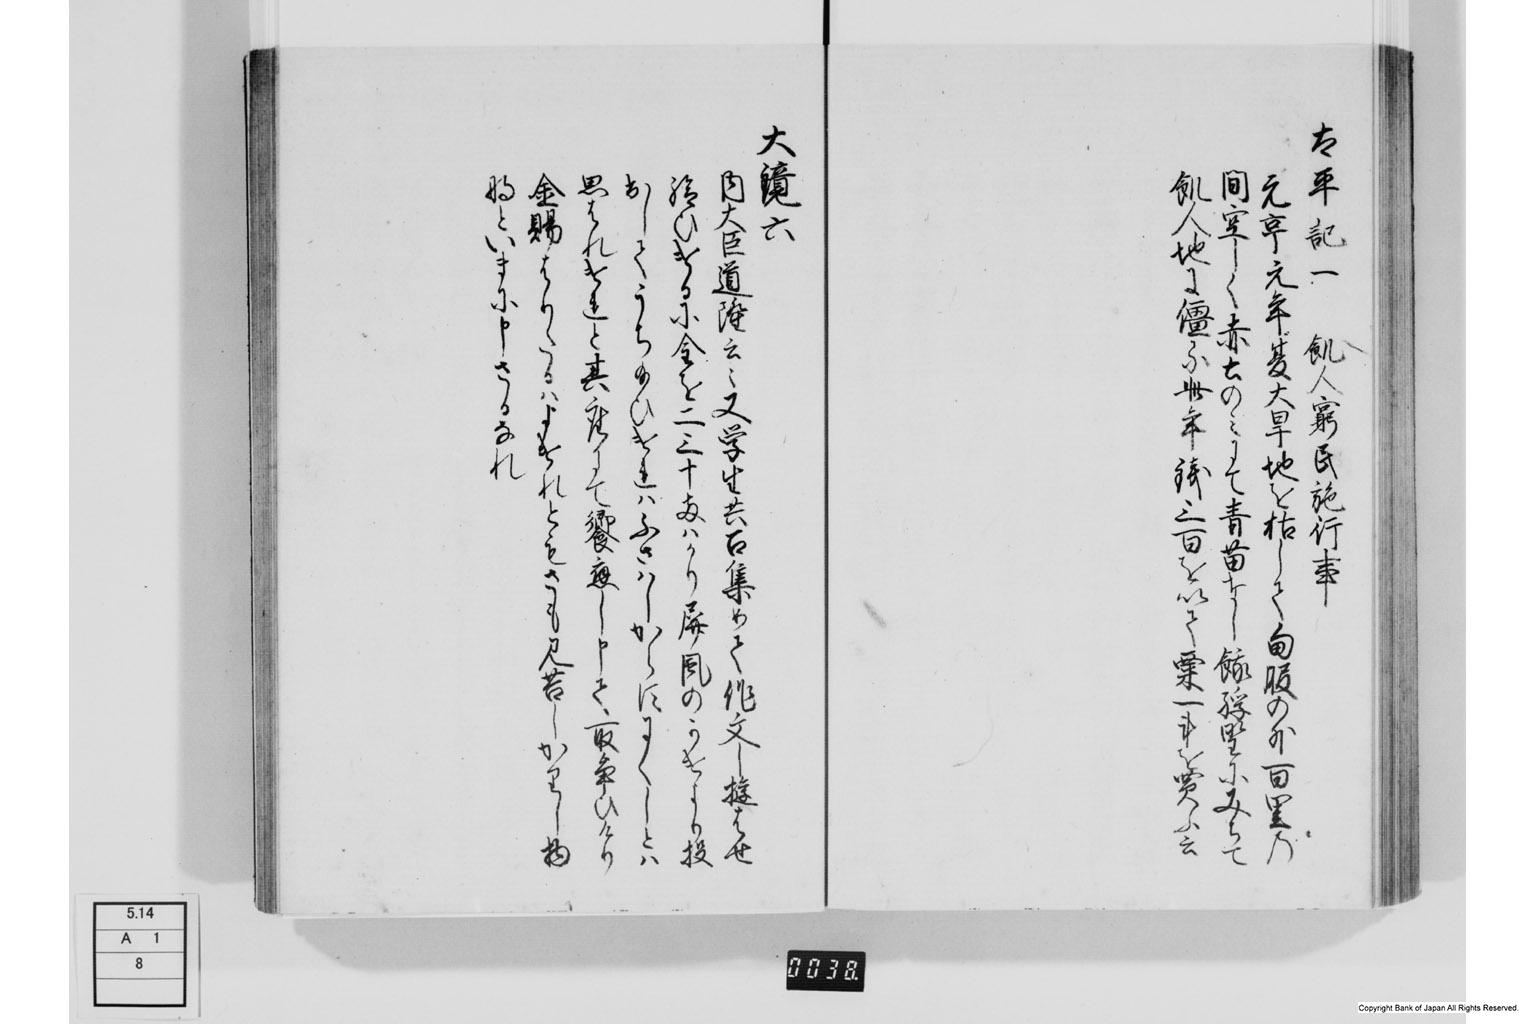 太平記一　飢人窮民施行事
元亨元年夏大旱地を枯して甸服の外百里乃
間空しく赤土のミにて青苗なし餓莩野にみちて
飢人地に僵る此年銭三百を以て粟一斗を買ふ云
大鏡六
内大臣道隆云々又学生共召集めて作文し遊はせ
給ひけるに金を二三十両ハかり屏風のうちより投
出してうち給ひけれハふさハしからすにくしとハ
思はれけれと其座にて饗應し申て取争ひけり
金賜はりたるハよけれともさも見苦しかりし物
かといまに申さるなれ
5.14
A 1
8
0038.
Copyright Bank of Japan All Rights Reserved.